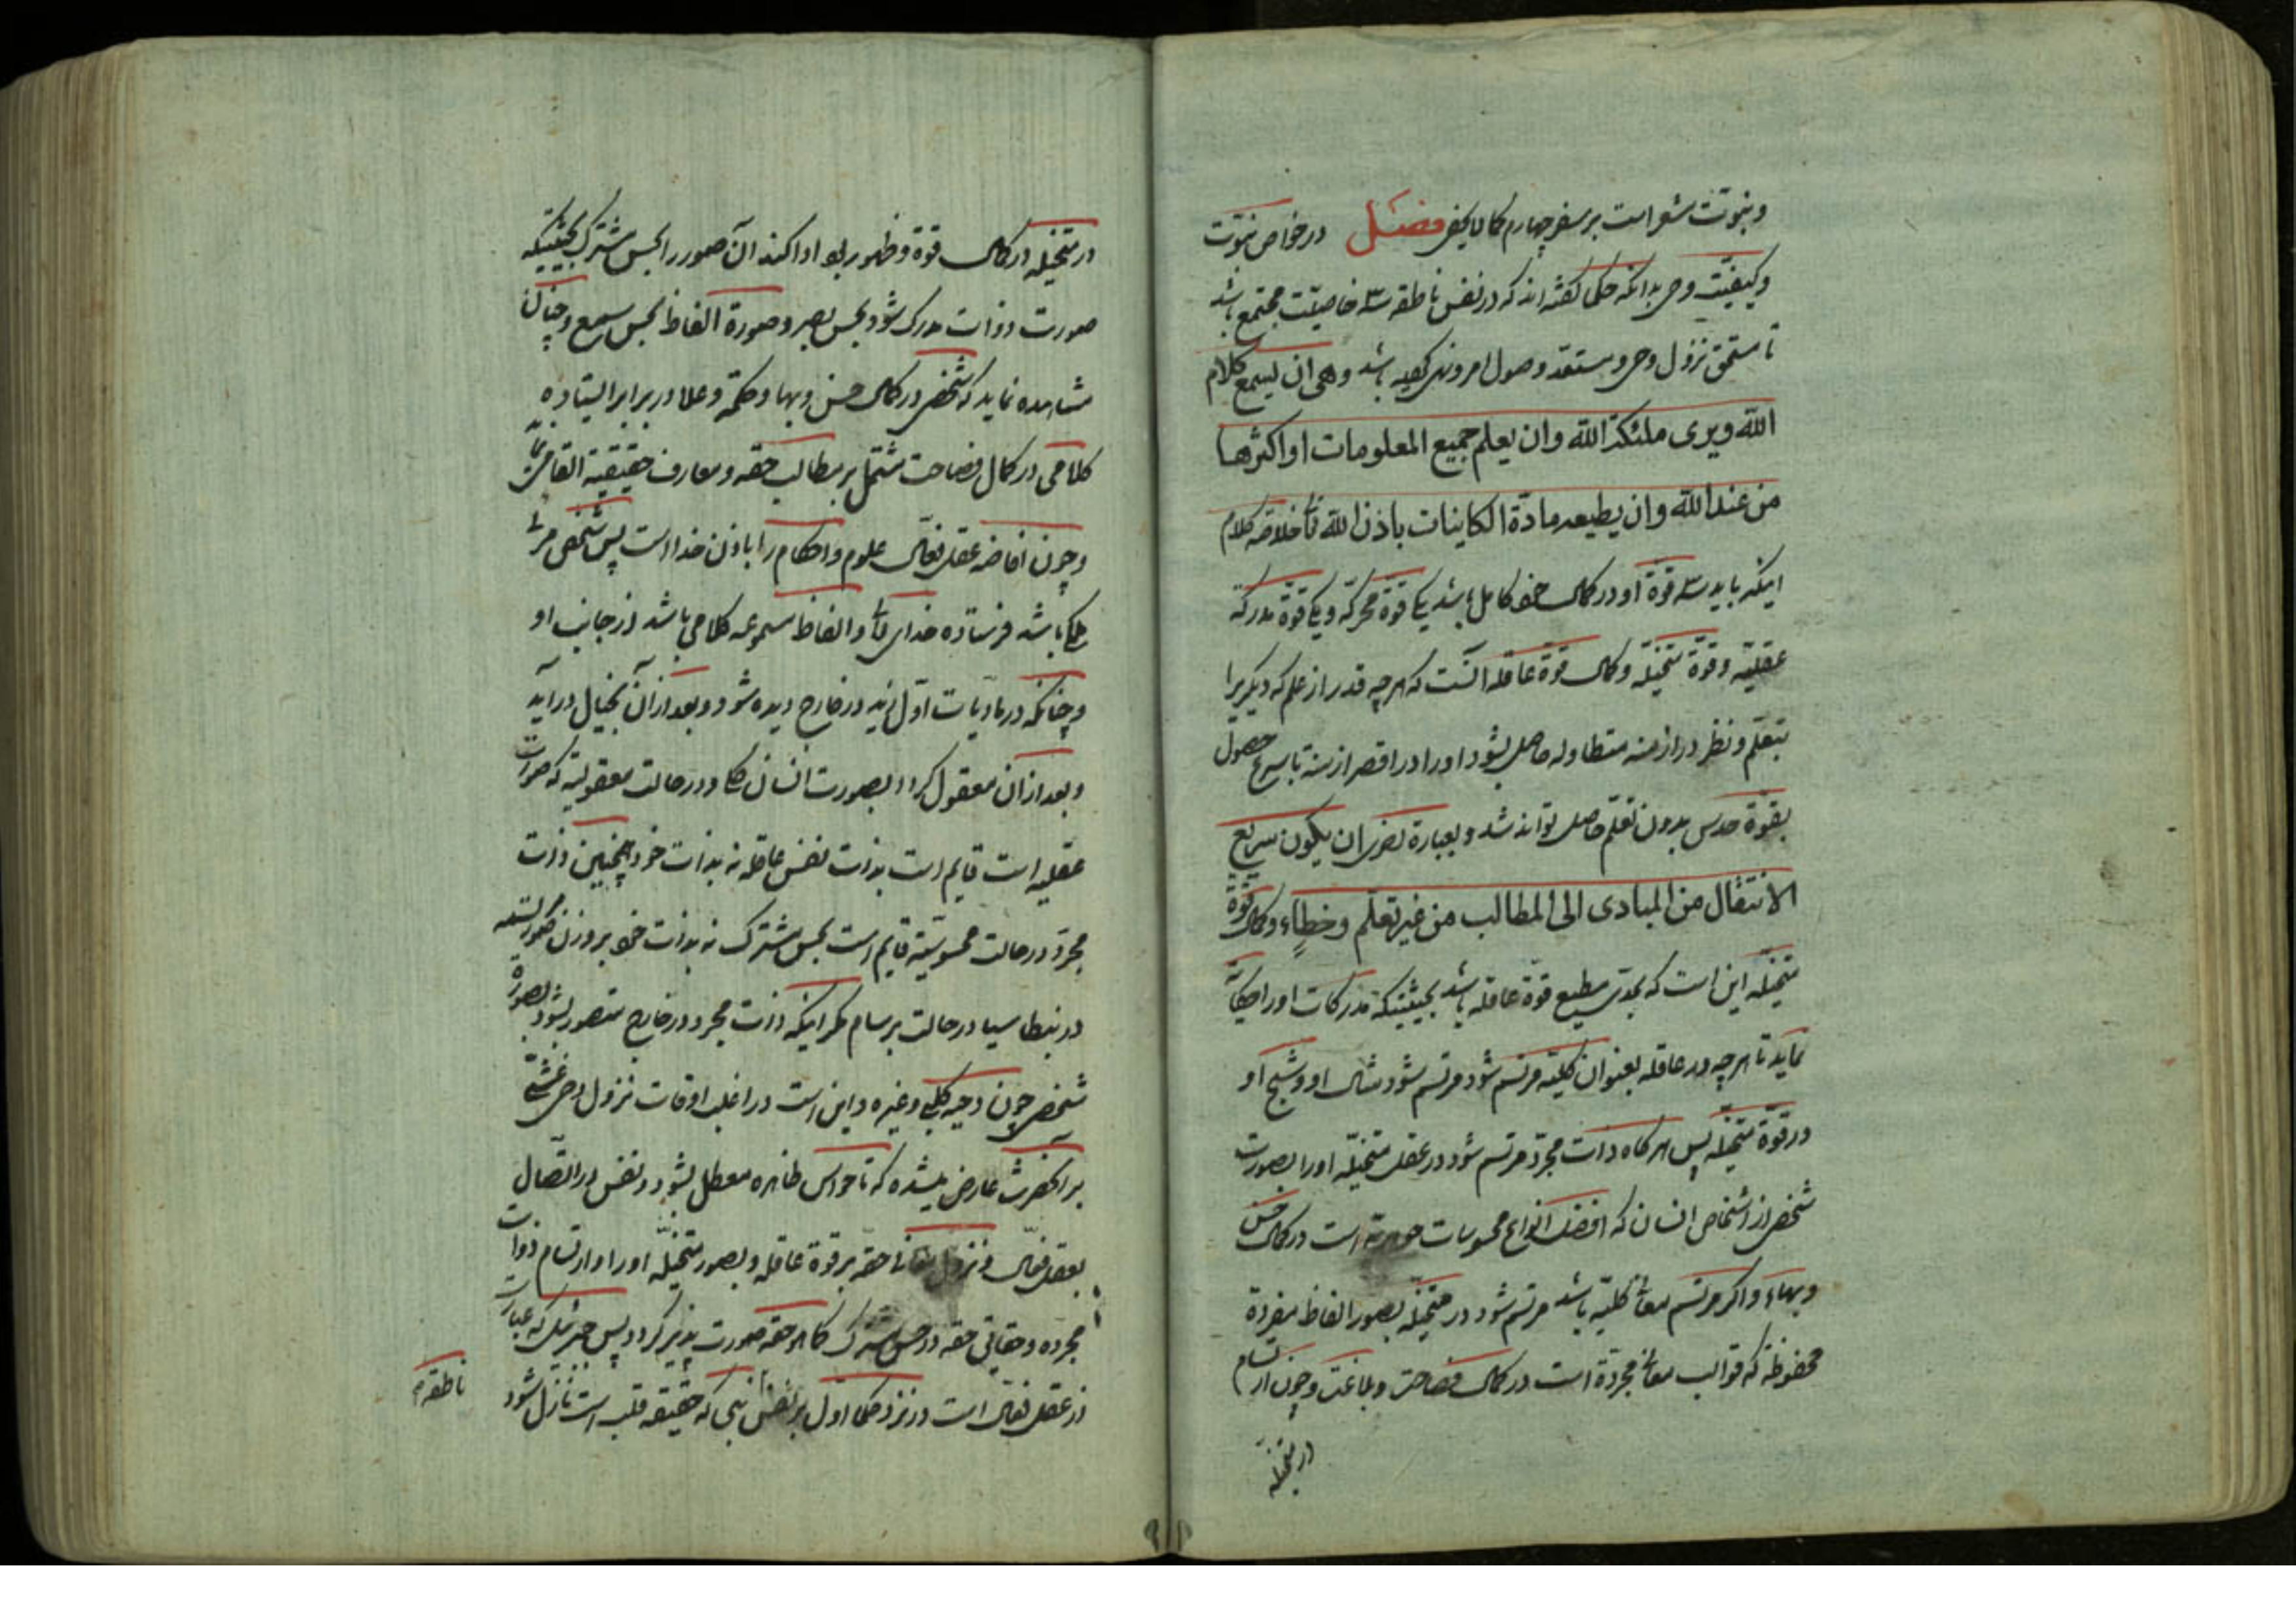 ونبوت مشعر است بر سفر چهارم کمالایخفی فصل در خواص نبوت
وکیفیت وحی بدانکه حکما گفته‌اند که در نفس ناطقه سه خاصیت مجتمع باشد
تا مستحق نزول وحی و مستعد وصول امر ونهی باشد وهی ان لیسمع کلام
الله ویری ملئکة الله وان یعلم جمیع المعلومات او اکثرها
من عند الله وان یطیعه مادة الکاینات باذن الله تع خلاصه کلام
اینکه باید سه قوة او در کمال خود کامل باشد یکی قوة محرکه ویکی قوة مدرکه
عقلیه وقوة متخیله وکمال قوة عاقله آنست که هر چه قدر از علم که دیگریرا
بتعلم ونظر در ازمنه متطاوله حاصل بشود او را در اقصر ازمنه تا سرع حصول
بقوة حدس بدون تعلم حاصل تواند شد وبعبارة اخری ان یکون سریع
الانتقال من المبادی الی المطالب من غیر تعلم وخطاء وکمال قوة
متخیله این است که بحدی مطیع قوة عاقله باشد بحیثیتیکه مدرکات او را حکایة
نماید تا هر چه در عاقله بعنوان کلیة مرتسم شود مرتسم شود مثال او وشبح او
در قوة متخیله پس هر کاه ذات مجرد مرتسم شود در عقل متخیله او را بصورت
شخصی از اشخاص انسان که افضل انواع محسوسات جوهریه است در کمال حسن
وبهاء واکر مرتسم معانی کلیه باشد مرتسم شود در متخیله بصور الفاظ مفردة
محفوظه که قوالب معانی مجردة است در کمال فصاحت وبلاغت وچون ارتسام
در متخیله
در متخیله در کمال قوة وظهور بود ادا کند آن صور را بحس مشترک بحیثیتیکه
صورت ذوات مدرک شود بحس بصر وصورة الفاظ بحس سمع وچنان
مشاهده نماید که شخصی در کمال حسن وبها وحکمة وعلا در برابر ایستاده
کلامی در کمال فصاحت مشتمل بر مطالب حقه ومعارف حقیقیه القا
وچون افاضه عقل فعال علوم واحکام را باذن خدا است پس شخص مرئی
ملکی باشد فرستاده خدای تع والفاظ مسموعه کلامی باشد از جانب او
وچنانکه در مادیات اول زید در خارج دیده شود وبعد از آن بخیال در آید
وبعد از آن معقول کردد بصورت انسان کلی ودر حالت معقولیة که صورت
عقلیه است قایم است بذات نفس عاقله نه بذات خود وهمچنین ذات
مجرد در حالت محسوسیة قایم است بحس مشترک نه بذات خود بر وزن
در بنطاسیا در حالت برسام مکر اینکه ذات مجرد در خارج متصور بشود بصورة
شخصی چون دحیه کلبی وغیره واین است در اغلب اوقات نزول وحی غشی
بر آنحضرت عارض میشده که تا حواس ظاهره معطل بشود ونفس در اتصال
بعقل فعال ونزول معانی حقه بر قوة عاقله وبصور متخیله او را وارتسام ذوات
مجرده وحقایق حقه در حس مشترک کما هو حقه صورت پذیر کردد پس جبرئیل که عبارت
از عقل فعال است در نزد حکما اول بر نفس نبی که حقیقه قلب است نازل شود
ناطقه